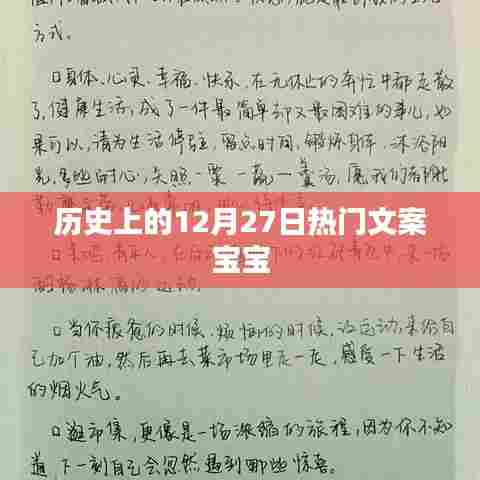 方式。
口身体、心灵、幸福、快乐,在无休止的奔忙中都走散
了,健康生活,成了一件最简单却又最困难的事儿,如
果可以,请为生活停驻,留点时间,锻炼身体,沐浴阳
光,多些耐心,关照一粟一蔬一羹汤,愿我们都能
历史上的12月27日热门文案
宝宝
口当你疲惫的时候、烦恼的时候,让运动来给自
己加个油,然后再去菜市场里走一走,感受一下生活
的烟火气。
口逛市集,更像是一场浓缩的旅程,因为你不知
道,下一刻自己会忽然遇到哪些惊喜。